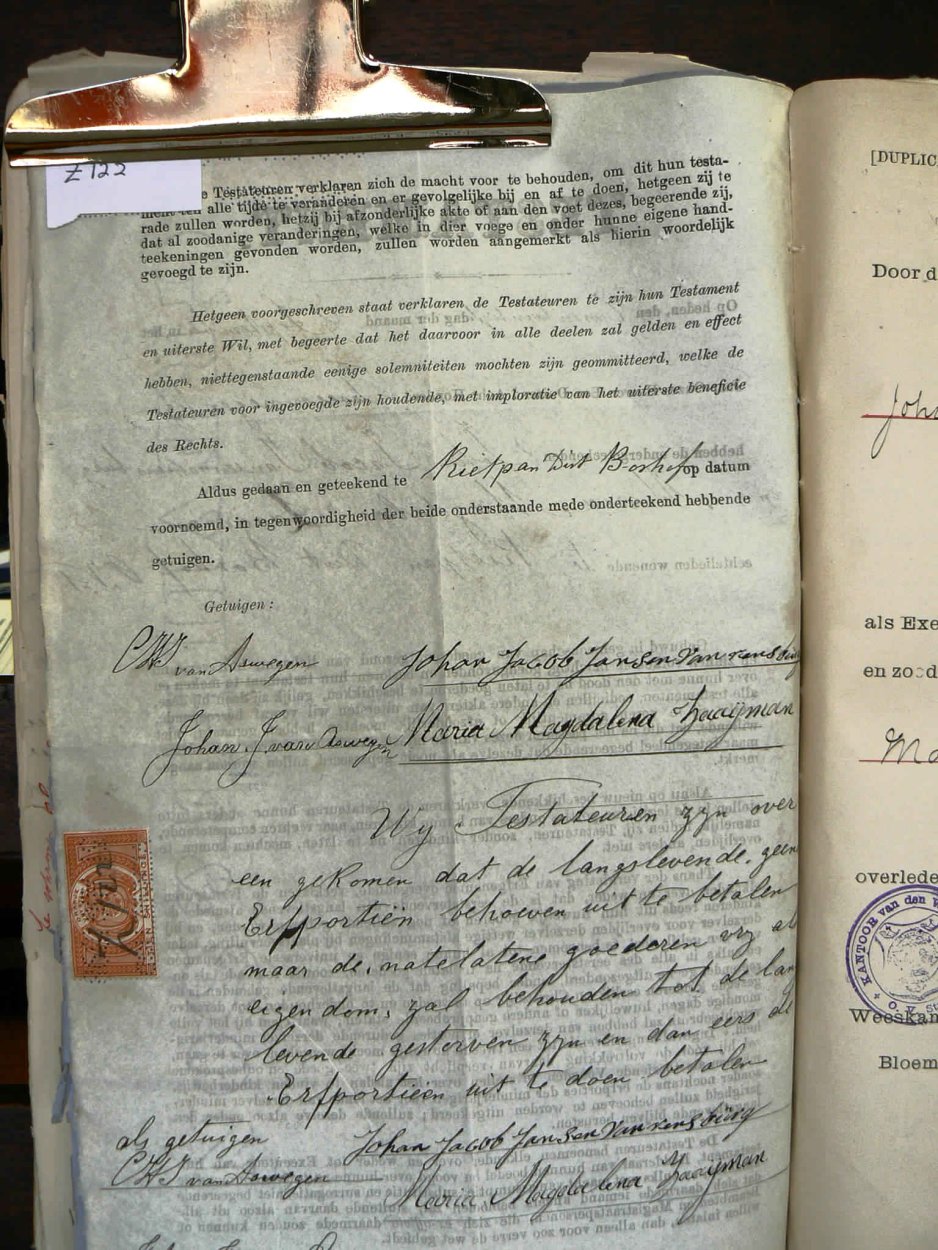 Z 122
e Testateuren verklaren zich de macht voor te behouden, om dit hun testa-
ment ten alle tijde te veranderen en er gevolgelijke bij en af te doen, hetgeen zij te
rade zullen worden, hetzij bij afzonderlijke akte of aan den voet dezes, begeerende zij,
dat al zoodanige veranderingen, welke in dier voege en onder hunne eigene hand-
teekeningen gevonden worden, zullen worden aangemerkt als hierin woordelijk
gevoegd te zijn.
Hetgeen voorgeschreven staat verklaren de Testateuren te zijn hun Testament
en uiterste Wil, met begeerte dat het daarvoor in alle deelen zal gelden en effect
hebben, niettegenstaande eenige solemniteiten mochten zijn geommitteerd, welke de
Testateuren voor ingevoegde zijn houdende, met imploratie van het uiterste beneficie
des Rechts.
Aldus gedaan en geteekend te Rietpan Dist Boshof op datum
voornoemd, in tegenwoordigheid der beide onderstaande mede onderteekend hebbende
getuigen.
Getuigen:
van Aswegen Johan Jacob Jansen Van rensburg
Johan. J van Aswegen Maria Magdalena Zaaijman
Wy Testateuren zyn over
een gekomen dat de langslevende. geen
Erfportiën behoeven uit te betalen
maar de. natelatene goederen vry al
eigendom, zal behouden tot de lan
levende gestorven zyn en dan eers de
Erfportiëen uit te doen betalen
als getuigen Johan Jacob Jansen Van rensburg
van Aswegen Maria Magdalena Zaayman
[DUPLIC
Door d
Joh
als Exe
en zo d
Ma
overlede
KANTOOR van den W
Weeskam
Bloem